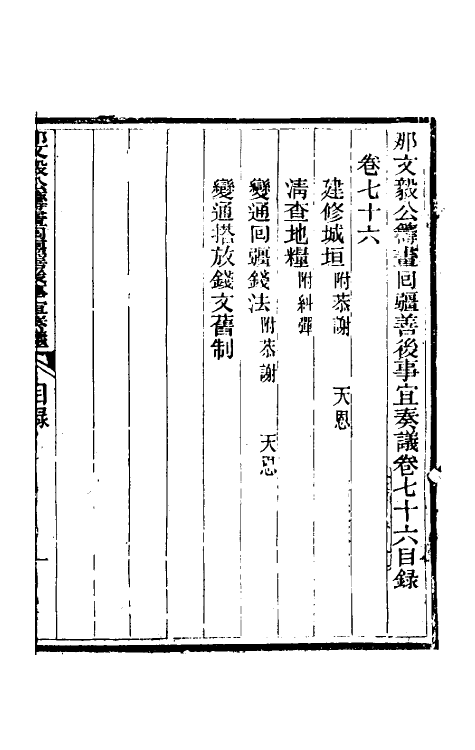 那文毅公籌畫囘疆善後事宜奏議卷七十六目錄
卷七十六
建修城垣附恭謝　天恩
清查地糧附糾彈
變通囘疆錢法附恭謝　天恩
變通搭放錢文舊制
那文毅公籌畫囘疆善後事宜奏議
目錄
一